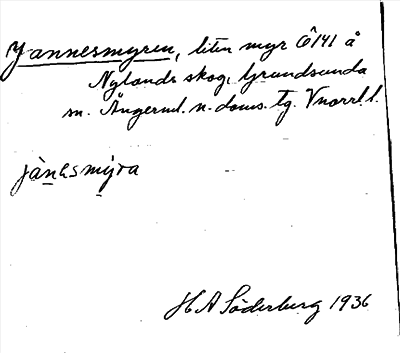 Jannesmyren, liten myr Ö141 å
Nylands skog, Grundsunda
sn. Ångerml. n. doms. tg. Vnorrl. l.
jànesmỳra
H A Söderberg 1936